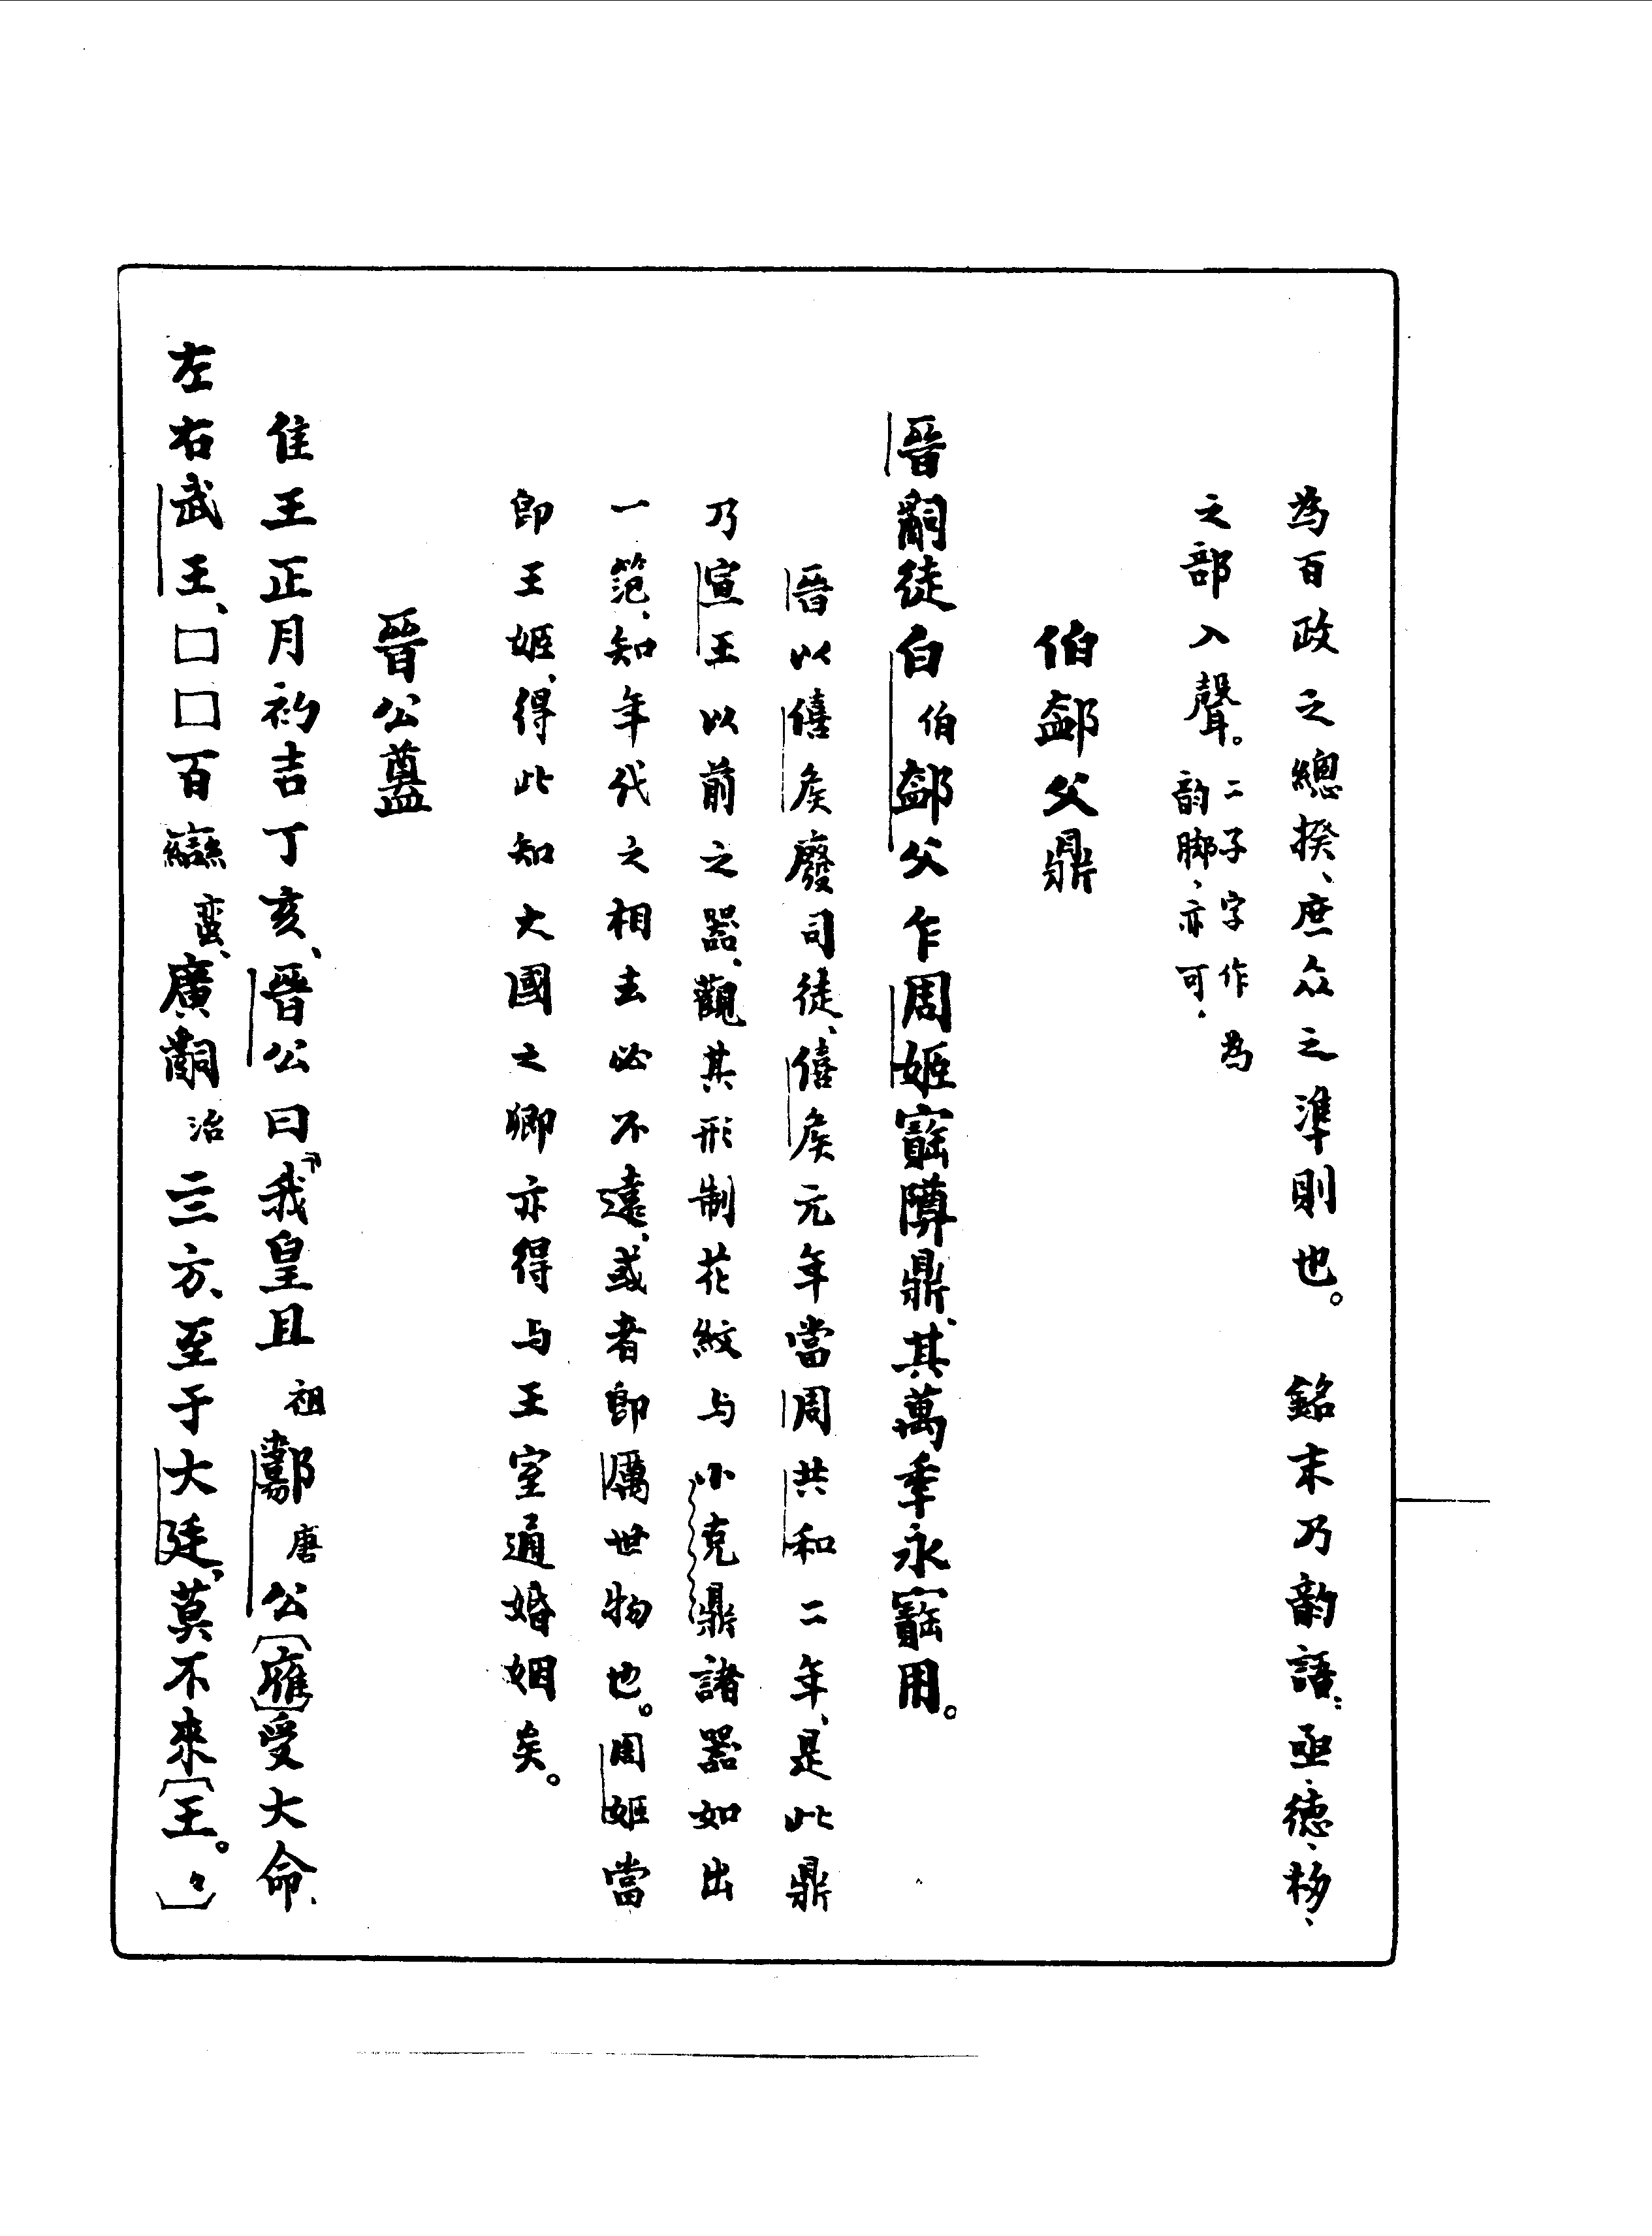 為百政之總揆、庶众之準則也。　銘末乃韵語：亟、德、㣈、
之部入聲。二子字作為韵脚，亦可，
伯䣢父鼎
晉嗣徒白伯䣢父乍周姬寶隣鼎、其萬季永寶用。
晉以僖矦廢司徒、僖矦元年當周共和二年、是此鼎
乃宣王以前之器、觀其形制花紋与小克鼎諸器如出
一范、知年代之相去必不遠、或者即厲世物也。周姬當
即王姬、得此知大國之卿亦得与王室通婚姻矣。
晉公𥂴
隹王正月初吉丁亥、晉公曰『我皇且祖鄺唐公〔雁〕受大命、
左右武王、□□百䜌蛮、廣嗣治三方、至于大廷、莫不來〔王。々〕